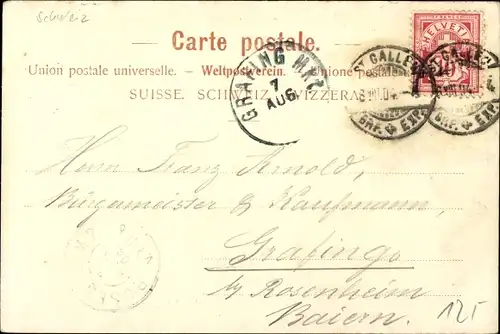 Schweiz
Carte postale.
Union postale universelle. – Weltpostverein. – Unione postale
SUISSE. SCHWEIZ. SVIZZERA.
HELVETIA
10
ST. GALLEN
BRF. EXP.
ST. GALLEN
BRF. EXP.
GRAFING MKT.
7
AUG
Herrn Franz Arnold,
Bürgermeister & Kaufmann,
Grafing
b/ Rosenheim
Baiern.
125